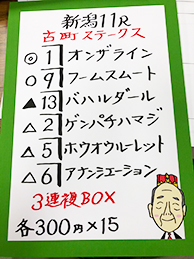 新潟11R
古町ステークス
◎ 1 オンザライン
○ 9 フームスムート
▲ 13 バハルダール
△ 2 ゲンパチハマジ
△ 5 ホウオウルーレット
△ 6 アナンシエーション
3連複BOX
各300円×15